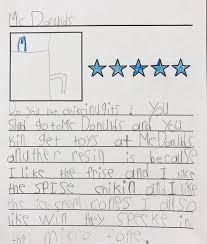 Mc Donulds
Do you like chikinnugits? You
shud go to Mc Donulds and you
kin get toys at McDonulds
anuther resin is because
I like the frise and I like
the spise chikin and I like
the ice cream cones I allso
like win they specke in
the micro fone.